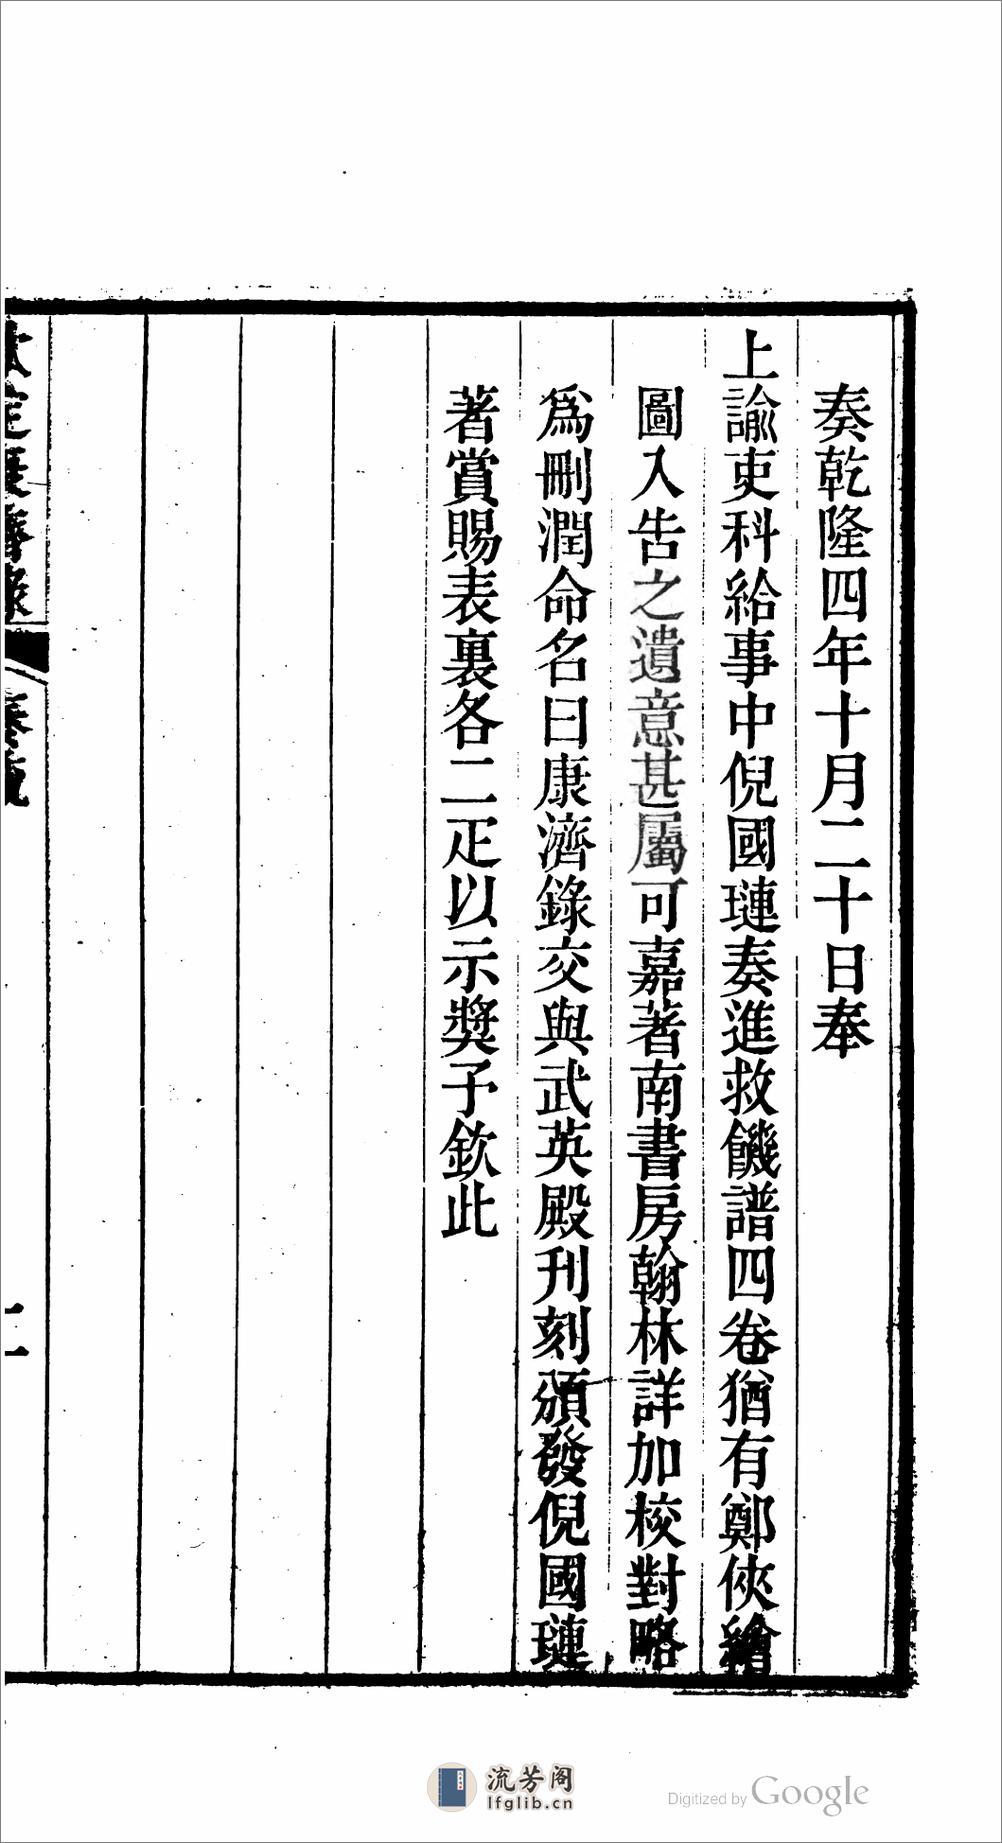 奏乾隆四年十月二十日奉
上諭吏科給事中倪國璉奏進救饑譜四卷猶有鄭俠繪
圖入告之遺意甚屬可嘉著南書房翰林詳加校對略
爲刪潤命名曰康濟錄交與武英殿刊刻頒發倪國璉
著賞賜表裏各二疋以示獎予欽此
欽定康濟錄
流芳阁
lfglib.cn
Digitized by Google